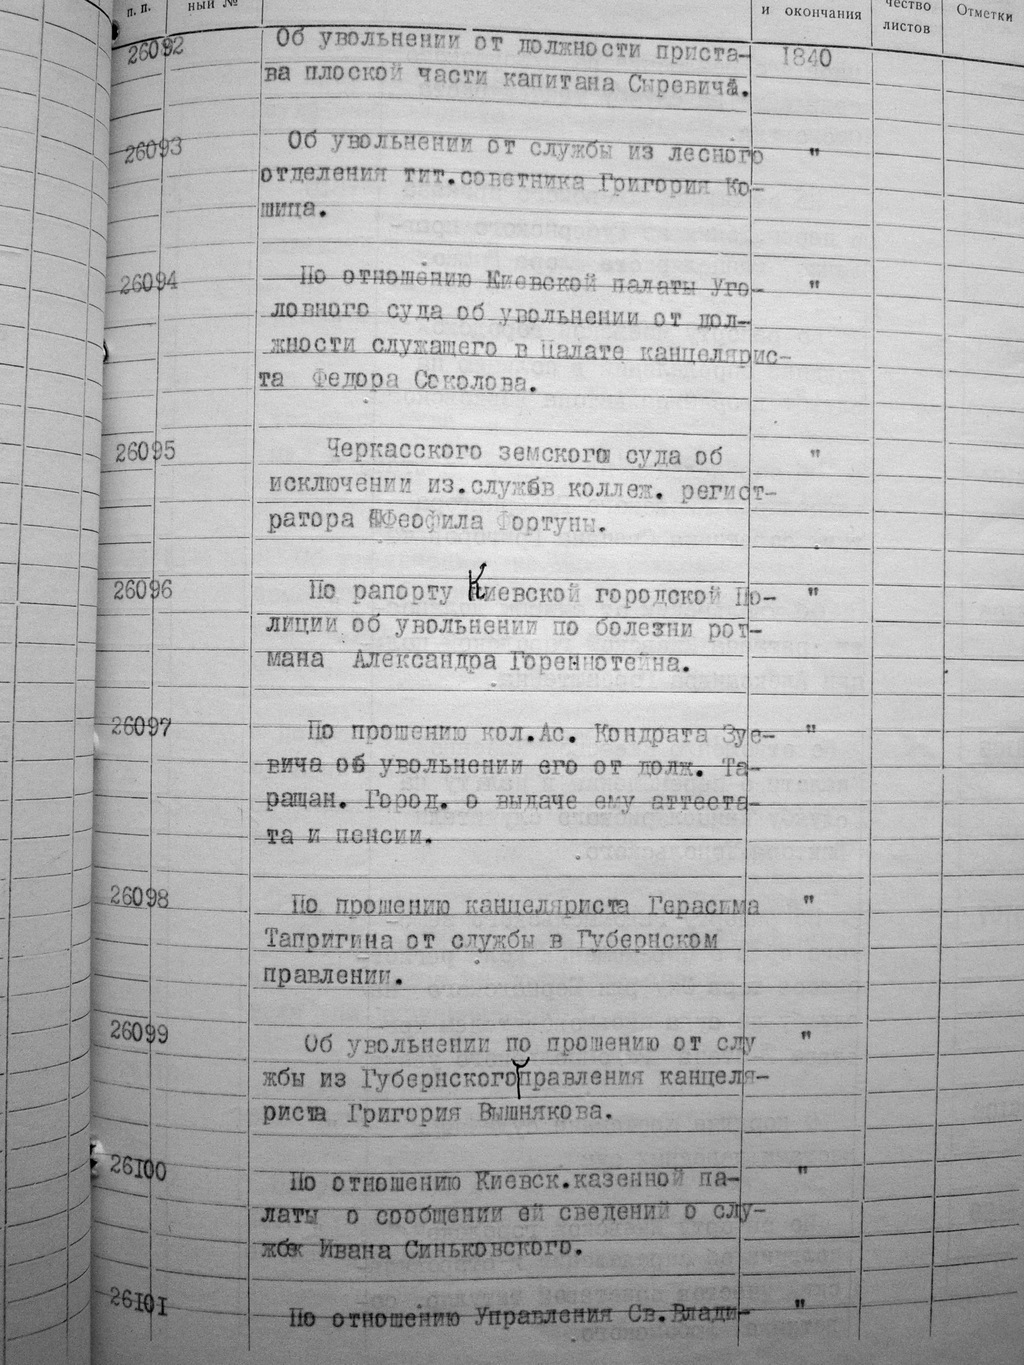 п. п. ный № и окончания чество листов Отметки
26092 Об увольнении от должности приста- 1840
ва плоской части капитана Сыревича.
26093 Об увольнении от службы из лесного "
отделения тит.советника Григория Ко-
шица.
26094 По отношению Киевской палаты Уго- "
ловного суда об увольнении от дол-
жности служащего в Палате канцелярис-
та Федора Соколова.
26095 Черкасского земского суда об "
исключении из.службв коллеж. регист-
ратора Феофила Фортуны.
26096 По рапорту Киевской городской По- "
лиции об увольнении по болезни рот-
мана Александра Гореннотейна.
26097 По прошению кол.Ас. Кондрата Зуе- "
вича об увольнении его от долж. Та-
ращан. Город. о выдаче ему аттеста-
та и пенсии.
26098 По прошению канцеляриста Герасима "
Тапригина от службы в Губернском
правлении.
26099 Об увольнении по прошению от слу "
жбы из Губернского правления канцеля-
риста Григория Вышнякова.
26100 По отношению Киевск.казенной па- "
латы о сообщении ей сведений о слу-
жбе Ивана Синьковского.
26101 По отношению Управления Св.Влади- "